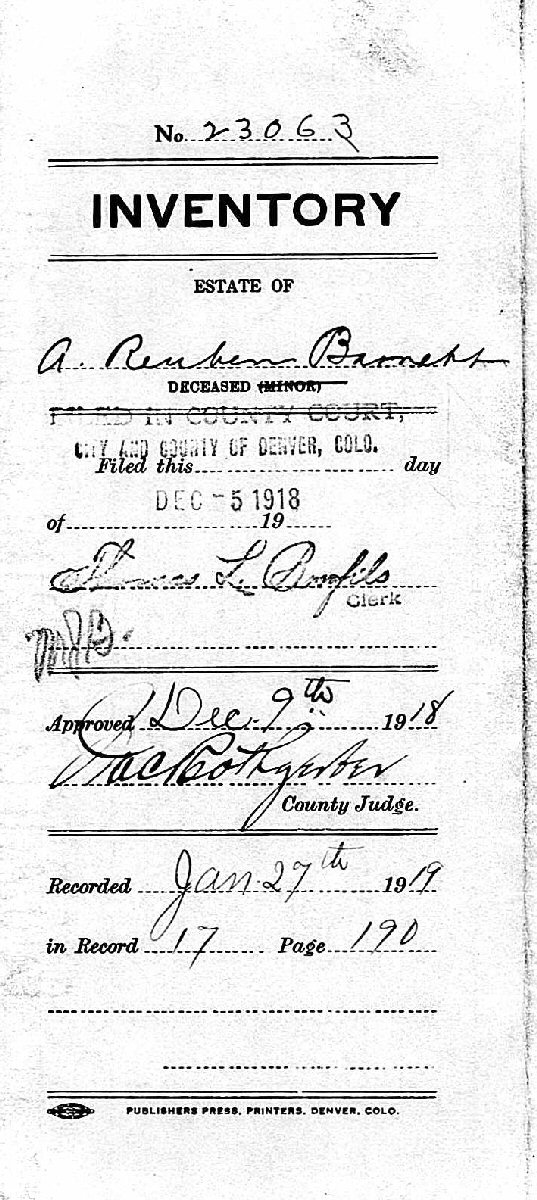 No. 23063
INVENTORY
ESTATE OF
A. Reuben Barnett
DECEASED (MINOR)
FILED IN COUNTY COURT,
CITY AND COUNTY OF DENVER, COLO.
Filed this day
DEC -5 1918
of 19
Thomas L. Bonfils
Clerk
Approved Dec. 9th 1918
Rothgerber
County Judge.
Recorded Jan. 27th 1919
in Record 17 Page 190
PUBLISHERS PRESS, PRINTERS, DENVER, COLO.